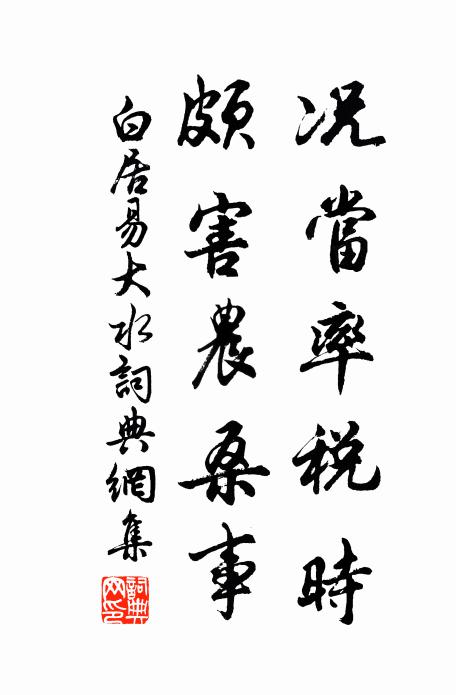 况當率税時
頗害農桑事
白居易大水詞典網集
詞典網印